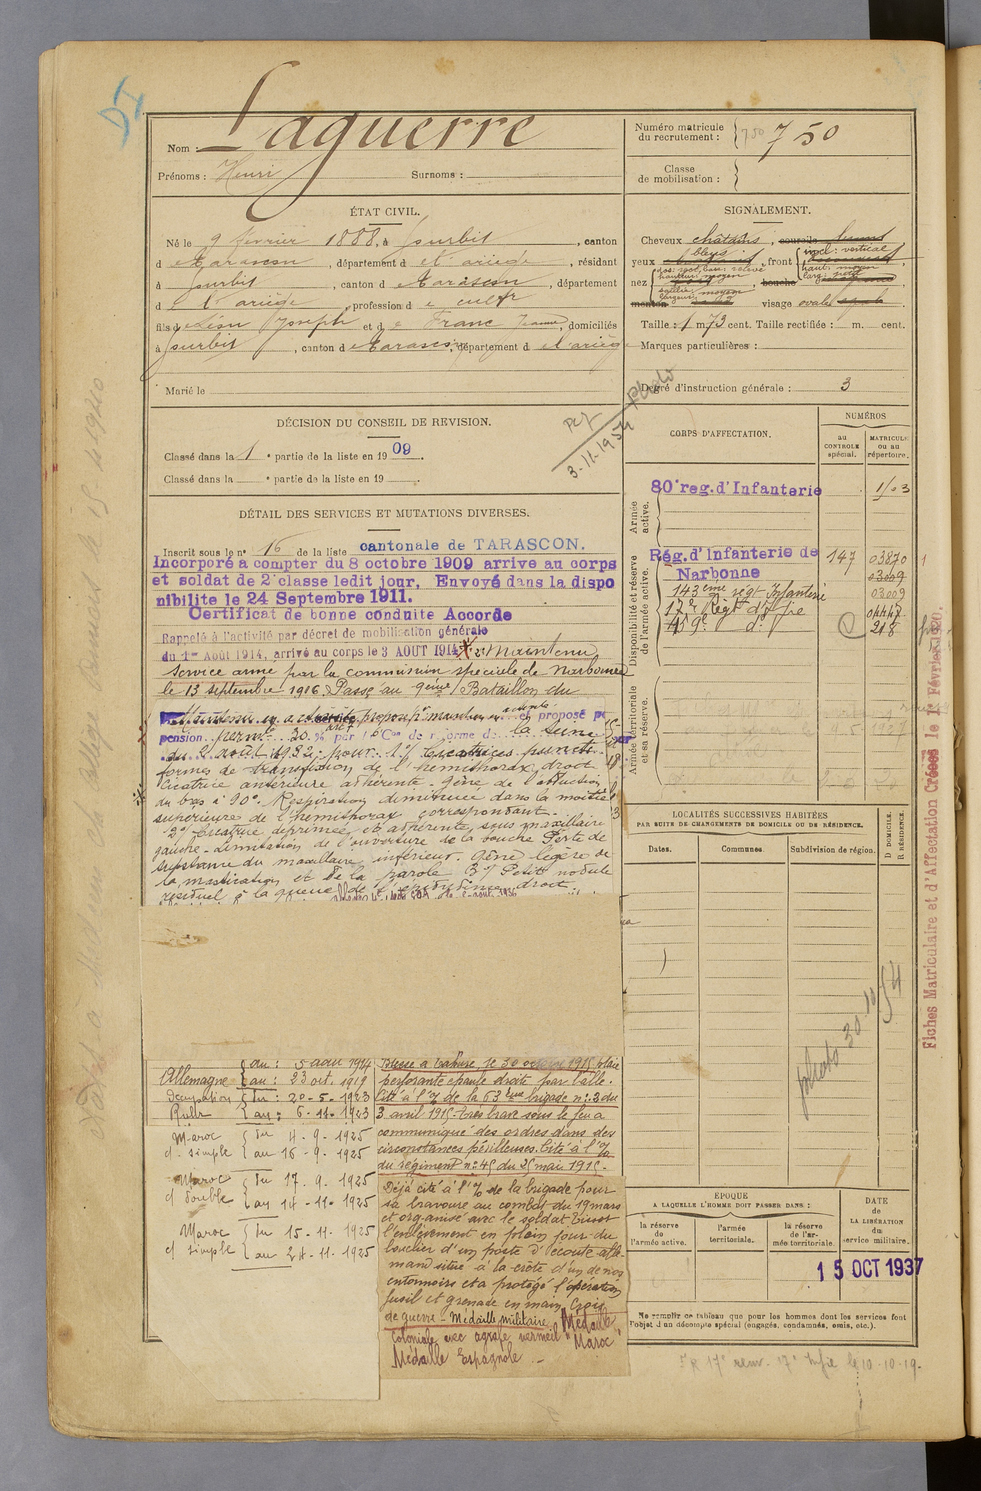 DI
Nom : Laguerre
Prénoms : Henri Surnoms :
Numéro matricule du recrutement : 750 750
Classe de mobilisation :
ÉTAT CIVIL.
Né le 9 février 1888, à Gourbit, canton
d e Tarascon, département d e l'ariège, résidant
à Gourbit, canton d e Tarascon, département
d e l'ariège, profession d e cultr
fils d e Léon Joseph et d e Franc Jeanne, domiciliés
à Gourbit, canton d e Tarascon, département d e l'ariège
Marié le
SIGNALEMENT.
Cheveux châtains, sourcils bruns
yeux bleus, front incl : vertical
haut : moyen
larg :
nez dos : rect, base : relevé
hauteur : moyen
saillie : moyen
largeur :
bouche
menton visage ovale
Taille : 1 m. 73 cent. Taille rectifiée : m. cent.
Marques particulières :
Degré d'instruction générale : 3
DÉCISION DU CONSEIL DE REVISION.
Classé dans la 1e partie de la liste en 1909.
Classé dans la e partie de la liste en 19 .
3-11-1954 Photo
DÉTAIL DES SERVICES ET MUTATIONS DIVERSES.
Inscrit sous le n° 16 de la liste cantonale de TARASCON.
Incorporé a compter du 8 octobre 1909 arrive au corps
et soldat de 2e classe ledit jour. Envoyé dans la dispo
nibilite le 24 Septembre 1911.
Certificat de bonne conduite Accordé
Rappelé à l'activité par décret de mobilisation générale
du 1er Août 1914, arrivé au corps le 3 AOUT 1914 Maintenu
service armé par la commission spéciale de Narbonne
le 13 septembre 1916 Passé au 9eme Bataillon du
proposé pr et proposé pr
pension permte 30 % par la Con de réforme de la Seine
du 2 août 1932 : pour 1°/ Cicatrices puncti
formes de transfixion de l'hémithorax droit
Cicatrice antérieure adhérente. Gêne de l'abduction
du bras à 90°. Respiration diminuée dans la moitié
supérieure de l'hémithorax correspondant.
2° Cicatrice déprimée et adhérente sous maxillaire
gauche. Limitation de l'ouverture de la bouche Perte de
substance du maxillaire inférieur. Gêne légère de
la mastication et de la parole 3°/ Petit nodule
résiduel à la queue de l'épididyme droit
CORPS D'AFFECTATION.
NUMÉROS
au CONTROLE spécial.
MATRICULE ou au répertoire.
Armée active.
80e reg. d'Infanterie
Disponibilité et réserve de l'armée active.
Rég. d'Infanterie de Narbonne 147 03870
03009
143eme régt Infanterie 03009
17e Régt d'Ifie
59e do 218
Armée territoriale et sa réserve.
LOCALITÉS SUCCESSIVES HABITÉES
PAR SUITE DE CHANGEMENTS DE DOMICILE OU DE RÉSIDENCE.
Dates. Communes. Subdivision de région. D DOMICILE. R RÉSIDENCE.
photo 30.10.54
Allemagne { du : 5 aout 1914
au : 23 oct. 1919
Occupation { du : 20-5-1923
Ruhr au : 6-11-1923
Maroc { du 4-9-1925
d. simple au 16-9-1925
Maroc { du 17.9.1925
d double au 14-11-1925
Maroc { du 15-11-1925
d simple au 24-11-1925
Blessé à Tahure, le 30 octobre 1915 plaie
perforante épaule droite par balle.
Cité à l'% de la 63eme brigade n°: 3 du
3 avril 1915. Très brave sous le feu a
communiqué des ordres dans des
circonstances périlleuses. Cité à l'%
du régiment n° 45 du 25 mai 1915.
Déjà cité à l'% de la brigade pour
sa bravoure au combat du 19 mars
et organisé avec le soldat
l'enlèvement en plein jour du
bouclier d'un poste d'écoute alle
mand situé à la crête d'un de nos
entonnoirs et a protégé l'opération
fusil et grenade en main. Croix
de guerre - Médaille militaire Médaille
Coloniale avec agrafe vermeil "Maroc"
Médaille Espagnole -
ÉPOQUE
A LAQUELLE L'HOMME DOIT PASSER DANS :
la réserve de l'armée active.
l'armée territoriale.
la réserve de l'armée territoriale.
DATE de LA LIBÉRATION du service militaire.
15 OCT 1937
Ne remplir ce tableau que pour les hommes dont les services font
l'objet d'un décompte spécial (engagés, condamnés, omis, etc.).
17e Infie le 10-10-19.
Fiches Matriculaire et d'Affectation Créées le 1er Février 1920.